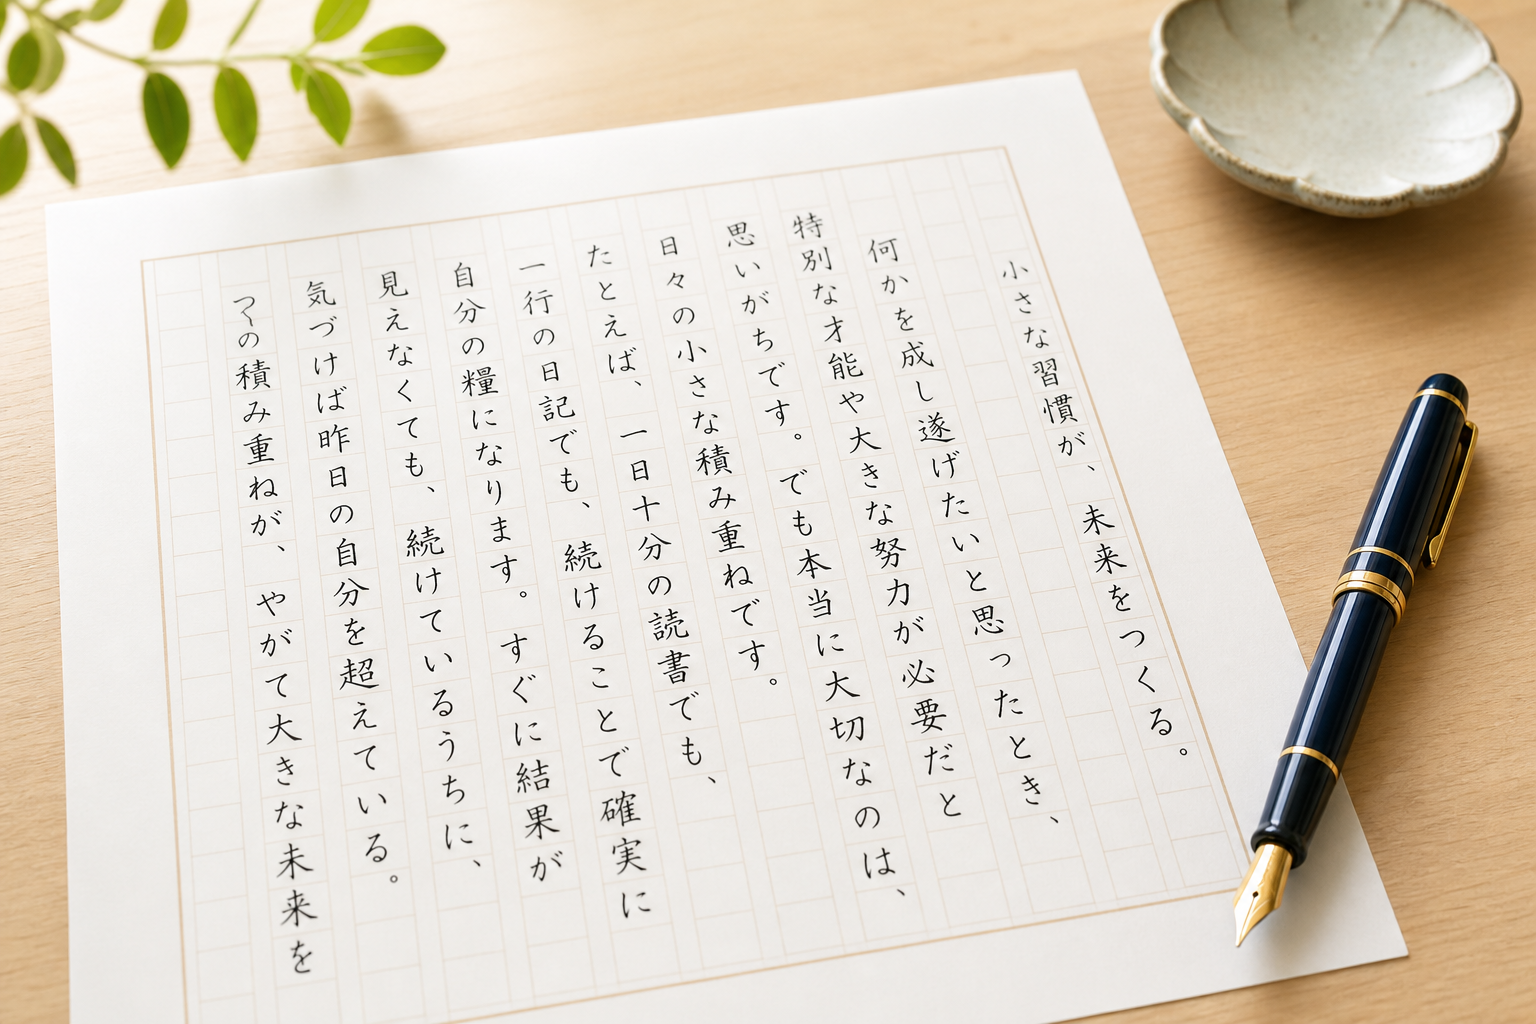 小さな習慣が、未来をつくる。
何かを成し遂げたいと思ったとき、
特別な才能や大きな努力が必要だと
思いがちです。でも本当に大切なのは、
日々の小さな積み重ねです。
たとえば、一日十分の読書でも、
一行の日記でも、続けることで確実に
自分の糧になります。すぐに結果が
見えなくても、続けているうちに、
気づけば昨日の自分を超えている。
の積み重ねが、やがて大きな未来を